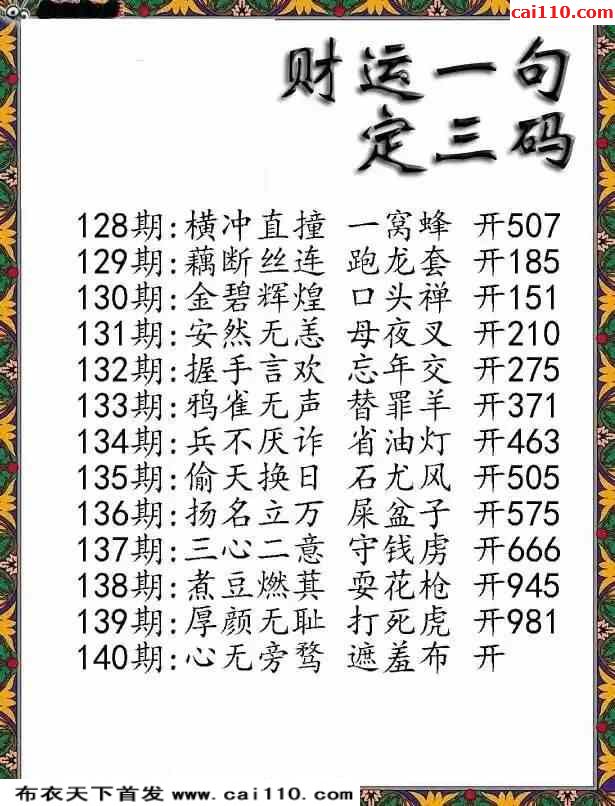 cai110.com
财运一句
定三码
128期:横冲直撞 一窝蜂 开507
129期:藕断丝连 跑龙套 开185
130期:金碧辉煌 口头禅 开151
131期:安然无恙 母夜叉 开210
132期:握手言欢 忘年交 开275
133期:鸦雀无声 替罪羊 开371
134期:兵不厌诈 省油灯 开463
135期:偷天换日 石尤风 开505
136期:扬名立万 屎盆子 开575
137期:三心二意 守钱虏 开666
138期:煮豆燃萁 耍花枪 开945
139期:厚颜无耻 打死虎 开981
140期:心无旁骛 遮羞布 开
布衣天下首发 www.cai110.com